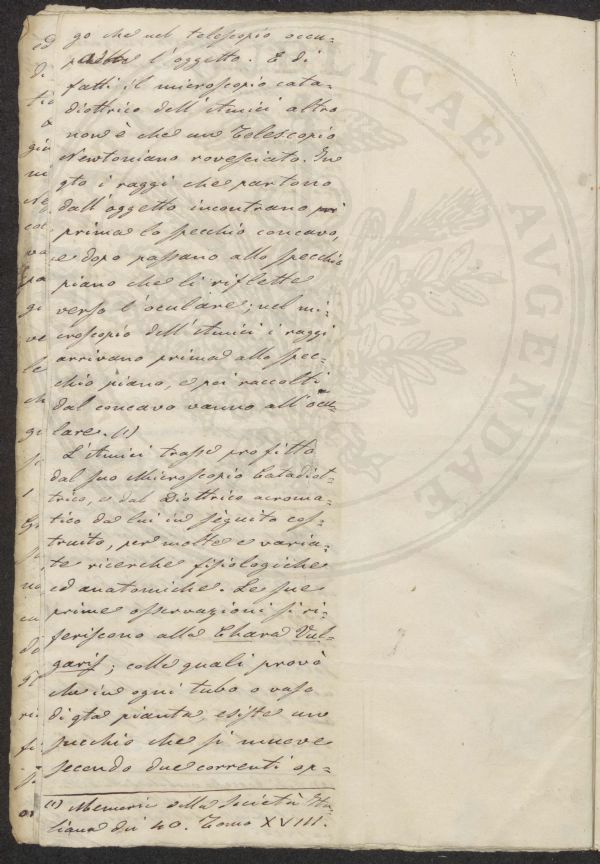 go che nel telescopio occu-
l'oggetto. E di
fatti il microscopio cata-
diottrico dell'Amici altro
non è che un Telescopio
Newtoniano rovesciato. In
qto i raggi che partono
dall'oggetto incontrano
prima lo specchio concavo,
e dopo passano allo specchio
piano che li riflette
verso l'oculare; nel mi-
croscopio dell'Amici i raggi
arrivano prima allo spec-
chio piano, e poi raccolti
dal concavo vanno all'ocu-
lare. (1)
L'Amici trasse profitto
dal suo Microscopio Catadiot-
trico, e dal Diottrico acroma-
tico da lui in sèguito cos-
truito, per molte e varia-
te ricerche fisiologiche
ed anatomiche. Le sue
prime osservazioni si ri-
feriscono alla Chara Vul-
garis; colle quali provò
che in ogni tubo o vaso
di qta pianta, esiste un
succhio che si muove
secondo due correnti op-
(1) Memorie della Società Ita-
liana dei 40. Tomo XVIII.
PUBLICAE
AVGENDAE